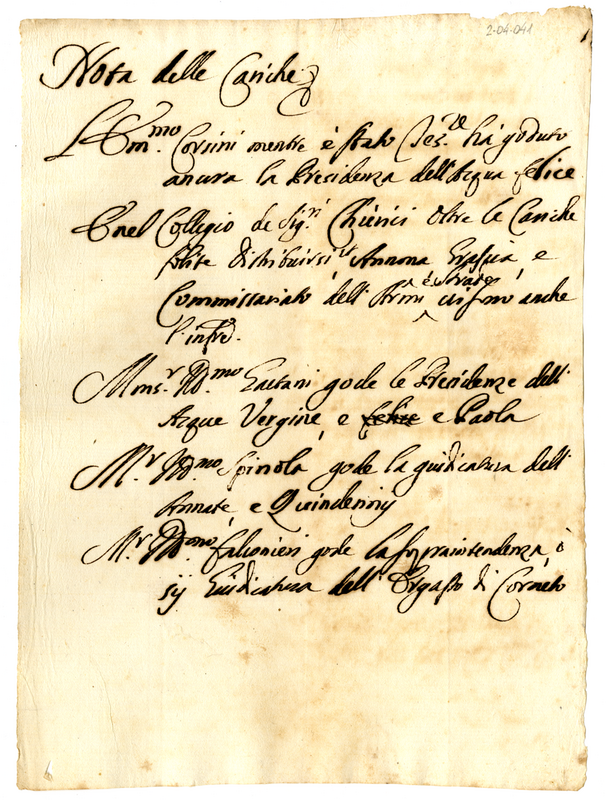 2-04-041
1
Nota delle Cariche
L'Em.mo Corsini mentre è stato Tes.re hà goduto
ancora la Presidenza dell'Acqua felice
E nel Collegio de Sig.ri Chierici oltre le Cariche
solite distribuirsi di Annona Grascia, e
Commissariato dell'Armi, è strade vi sono anche
l'infre.
Mons.r Ill.mo Gaetani gode le Presidenze dell'
Acque Vergine, e felice e Paola
M.r Ill.mo Spinola gode la giudicatura dell'
Annate e Quindennij
M.r Ill.mo Falconieri gode la sopraintendenza, ò
sij Giudicatura dell' di Corneto